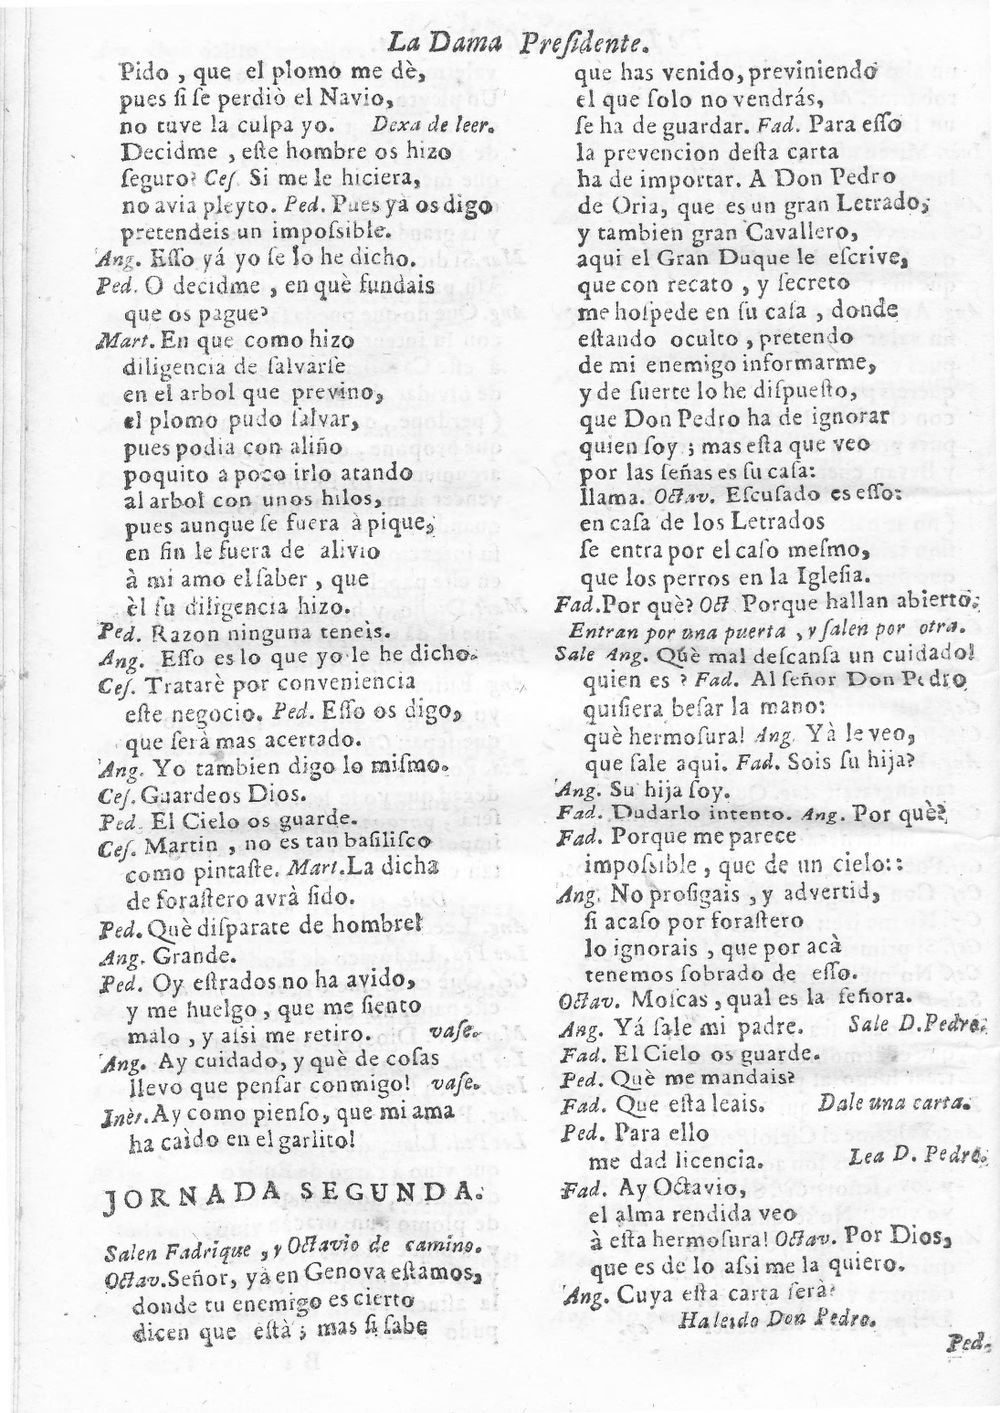 La Dama Preſidente.
Pido, que el plomo me dè,
pues ſi ſe perdiò el Navio,
no tuve la culpa yo. Dexa de leer.
Decidme, eſte hombre os hizo
ſeguro? Ceſ. Si me le hiciera,
no avia pleyto. Ped. Pues yá os digo
pretendeis un impoſsible.
Ang. Eſſo yá yo ſe lo he dicho.
Ped. O decidme, en què fundais
que os pague?
Mart. En que como hizo
diligencia de ſalvarſe
en el arbol que previno,
el plomo pudo ſalvar,
pues podia con aliño
poquito a poco irlo atando
al arbol con unos hilos,
pues aunque ſe fuera à pique,
en fin le fuera de alivio
à mi amo el ſaber, que
èl ſu diligencia hizo.
Ped. Razon ninguna teneis.
Ang. Eſſo es lo que yo le he dicho.
Ceſ. Tratarè por conveniencia
eſte negocio. Ped. Eſſo os digo,
que ſerà mas acertado.
Ang. Yo tambien digo lo miſmo.
Ceſ. Guardeos Dios.
Ped. El Cielo os guarde.
Ceſ. Martin, no es tan baſiliſco
como pintaſte. Mart. La dicha
de foraſtero avrà ſido.
Ped. Què diſparate de hombre!
Ang. Grande.
Ped. Oy eſtrados no ha avido,
y me huelgo, que me ſiento
malo, y aſsi me retiro. vaſe.
Ang. Ay cuidado, y què de coſas
llevo que penſar conmigo! vaſe.
Inès. Ay como pienſo, que mi ama
ha caìdo en el garlito!
JORNADA SEGUNDA.
Salen Fadrique, y Octavio de camino.
Octav. Señor, yá en Genova eſtamos,
donde tu enemigo es cierto
dicen que eſtà; mas ſi ſabe
que has venido, previniendo
el que ſolo no vendrás,
ſe ha de guardar. Fad. Para eſſo
la prevencion deſta carta
ha de importar. A Don Pedro
de Oria, que es un gran Letrado,
y tambien gran Cavallero,
aqui el Gran Duque le eſcrive,
que con recato, y ſecreto
me hoſpede en ſu caſa, donde
eſtando oculto, pretendo
de mi enemigo informarme,
y de ſuerte lo he diſpueſto,
que Don Pedro ha de ignorar
quien ſoy; mas eſta que veo
por las ſeñas es ſu caſa:
llama. Octav. Eſcuſado es eſſo:
en caſa de los Letrados
ſe entra por el caſo meſmo,
que los perros en la Igleſia.
Fad. Por què? Oct. Porque hallan abierto.
Entran por una puerta, y ſalen por otra.
Sale Ang. Què mal deſcanſa un cuidado!
quien es? Fad. Al ſeñor Don Pedro
quiſiera beſar la mano:
què hermoſura! Ang. Yà le veo,
que ſale aqui. Fad. Sois ſu hija?
Ang. Su hija ſoy.
Fad. Dudarlo intento. Ang. Por què?
Fad. Porque me parece
impoſsible, que de un cielo::
Ang. No proſigais, y advertid,
ſi acaſo por foraſtero
lo ignorais, que por acà
tenemos ſobrado de eſſo.
Octav. Moſcas, qual es la ſeñora.
Ang. Yá ſale mi padre. Sale D. Pedro.
Fad. El Cielo os guarde.
Ped. Què me mandais?
Fad. Que eſta leais. Dale una carta.
Ped. Para ello
me dad licencia. Lea D. Pedro.
Fad. Ay Octavio,
el alma rendida veo
à eſta hermoſura! Octav. Por Dios,
que es de lo aſsi me la quiero.
Ang. Cuya eſta carta ſerà?
Ha leìdo Don Pedro.
Ped.